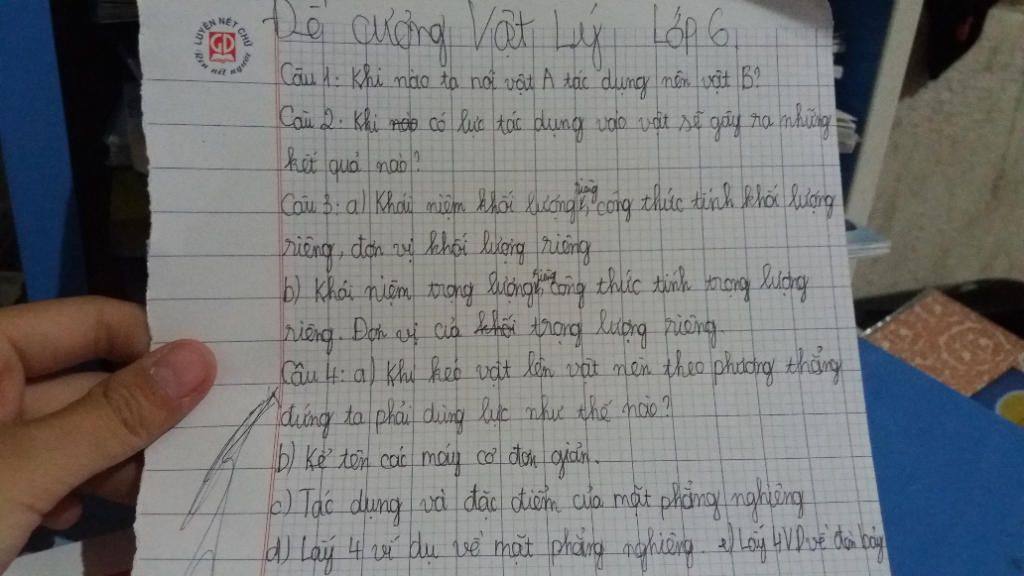 LUYỆN NÉT CHỮ
GD
RÈN NẾT NGƯỜI
Đề cương Vật Lý Lớp 6
Câu 1: Khi nào ta nói vật A tác dụng nên vật B?
Câu 2. Khi nào có lực tác dụng vào vật sẽ gây ra những
kết quả nào?
Câu 3: a) Khái niệm khối lượng riêng, công thức tính khối lượng
riêng, đơn vị khối lượng riêng
b) Khái niệm trọng lượng riêng, công thức tính trọng lượng
riêng. Đơn vị cả khối trọng lượng riêng.
Câu 4: a) Khi kéo vật lên vật nên theo phương thẳng
đứng ta phải dùng lực như thế nào?
b) Kể tên các máy cơ đơn giản.
c) Tác dụng và đặc điểm của mặt phẳng nghiêng
d) Lấy 4 ví dụ về mặt phẳng nghiêng. e) Lấy 4 VD về đòn bẩy